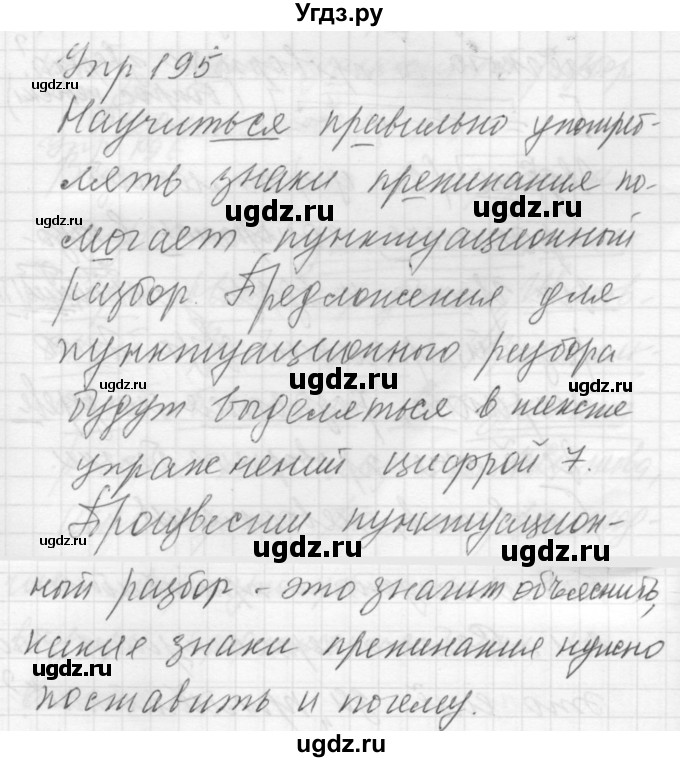 Угдз.ру
Упр 195
ugdz.ru
ugdz.ru
Научиться правильно употреб-
лять знаки препинания по-
ugdz.ru ugdz.ru
ugdz.ru
могает пунктуационный
разбор. Предложения для
пунктуационного разбора
ugdz.ru ugdz.ru ugdz.ru
будут выделяться в тексте
упражнений цифрой 7.
Произвести пунктуацион-
ugdz.ru ugdz.ru ugdz.ru
ный разбор - это значит объяснить,
какие знаки препинания нужно
ugdz.ru
поставить и почему.
ugdz.ru ugdz.ru
ugdz.ru